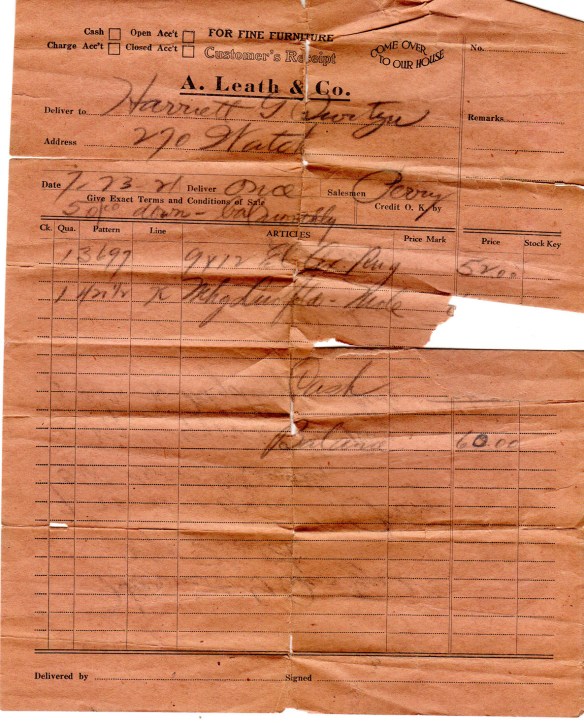 Cash Open Acc't FOR FINE FURNITURE
Charge Acc't Closed Acc't Customer's Receipt
COME OVER TO OUR HOUSE
No.
A. Leath & Co.
Deliver to Harriett G
Remarks
Address 270
Date 7-23-21 Deliver once Salesmen Perry
Give Exact Terms and Conditions of Sale Credit O. K. by
50.00 down - bal monthly
Ck. Qua. Pattern Line ARTICLES Price Mark Price Stock Key
1 3697 9x12 Rug 52.00
1 K Mhg
Cash
Balance 60.00
Delivered by Signed